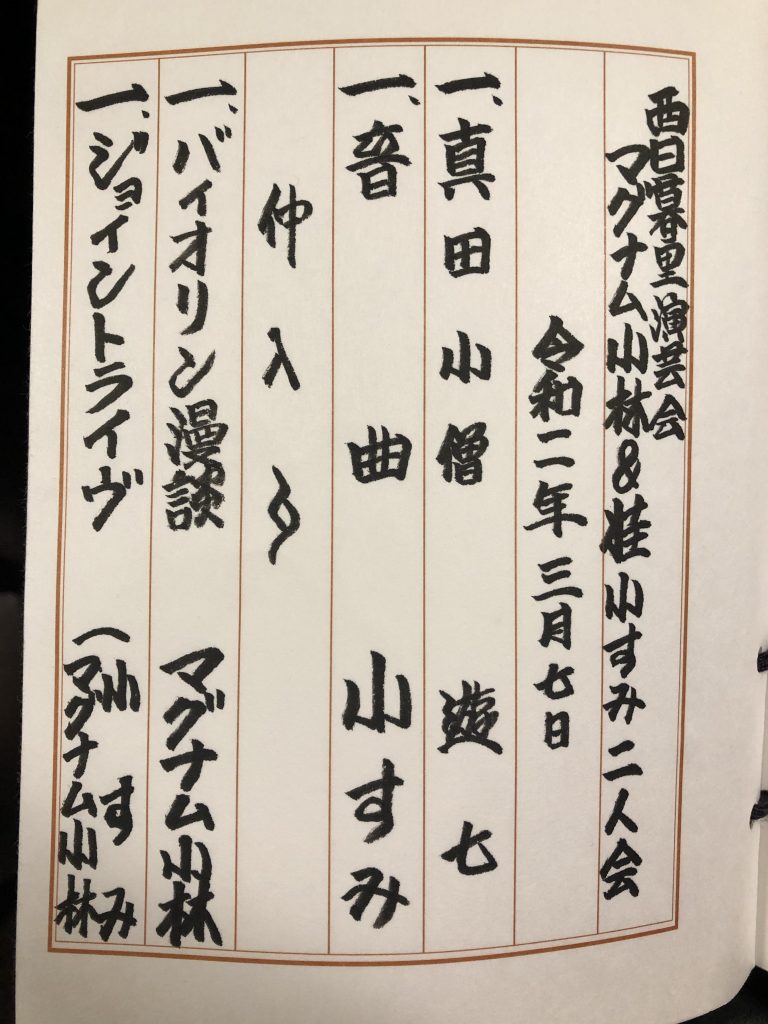 西日暮里演芸会
マグナム小林&桂小すみ二人会
令和二年三月七日
一、真田小僧 遊七
一、音曲 小すみ
仲入り
一、バイオリン漫談 マグナム小林
一、ジョイントライヴ (小すみ
マグナム小林